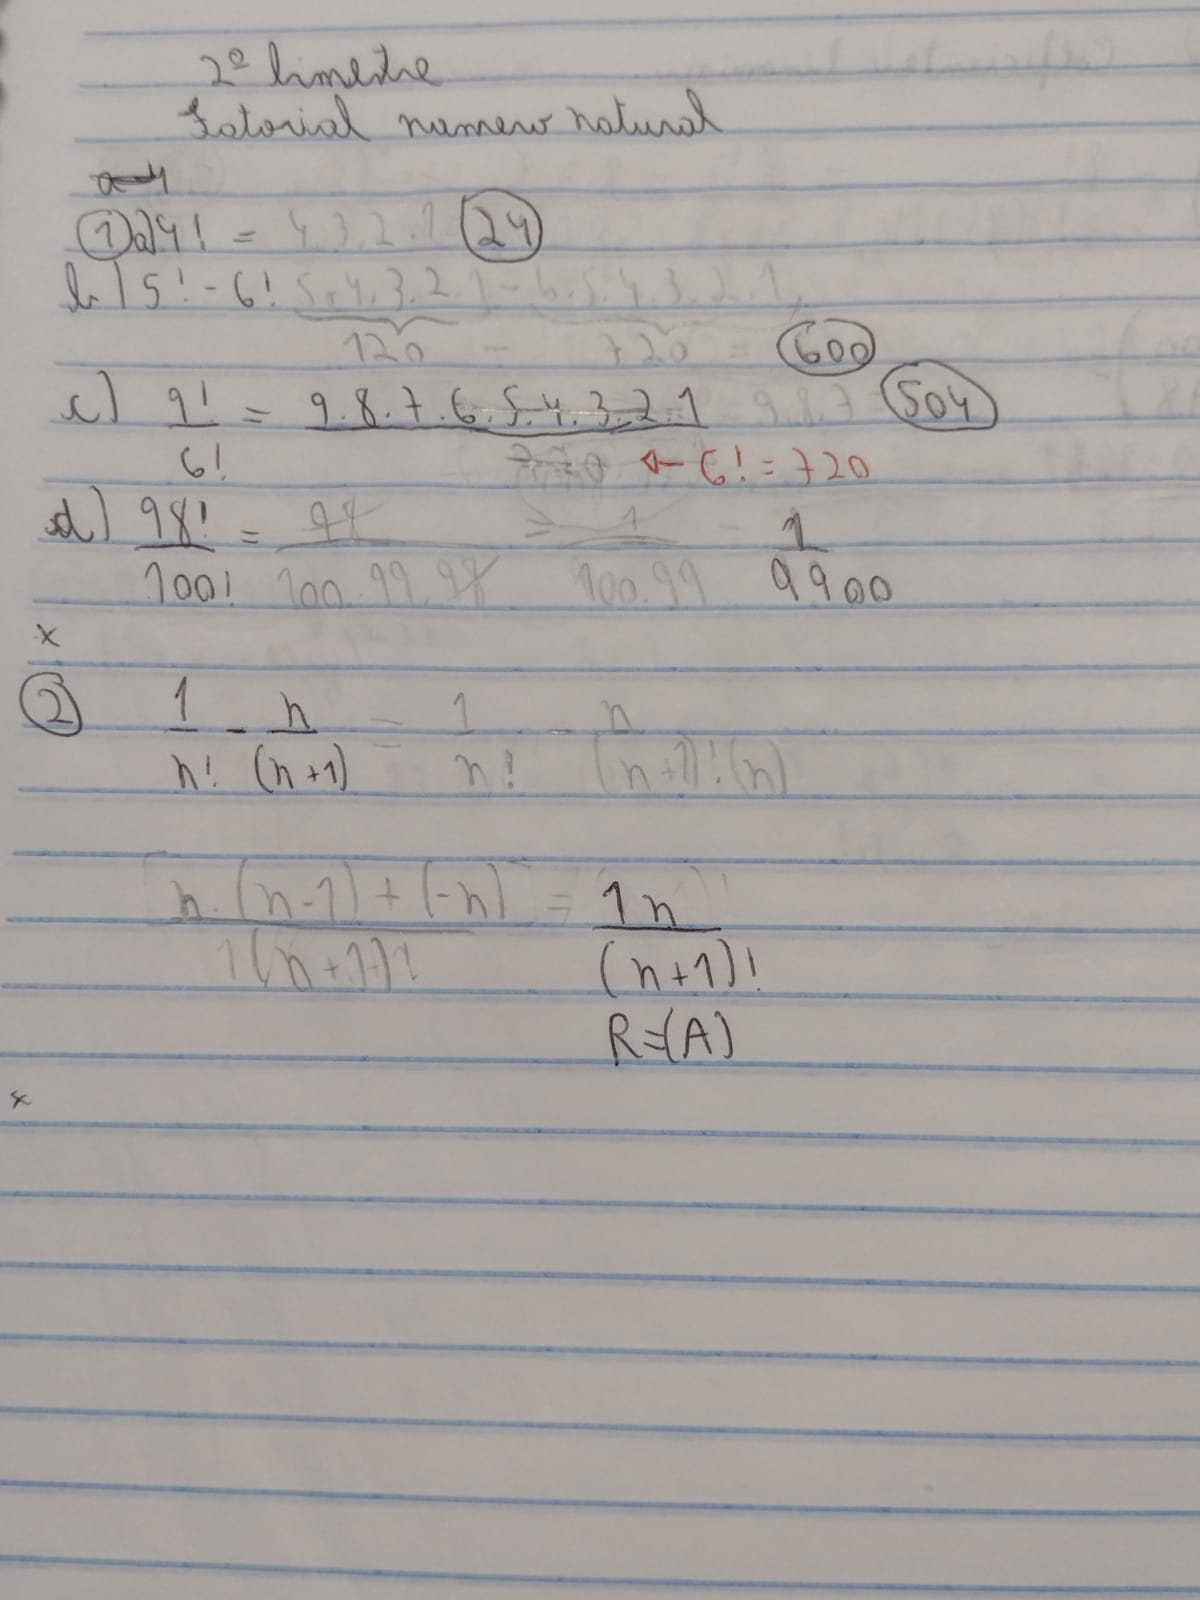 2º bimestre
Fatorial numero natural
a 4
① a) 4! = 4.3.2.1 24
b) 5! - 6! 5.4.3.2.1 - 6.5.4.3.2.1
120 - 720 = 600
c) 9!/6! = 9.8.7.6.5.4.3.2.1/720 = 9.8.7 504
← 6! = 720
d) 98!/100! = 98/100.99.98 = 1/100.99 - 1/9900
x
② 1/n! - n/(n+1) = 1/n! - n/(n+1)!(n)
n.(n-1)+(-n)/1(n+1)1 = 1n/(n+1)!
R=(A)
x